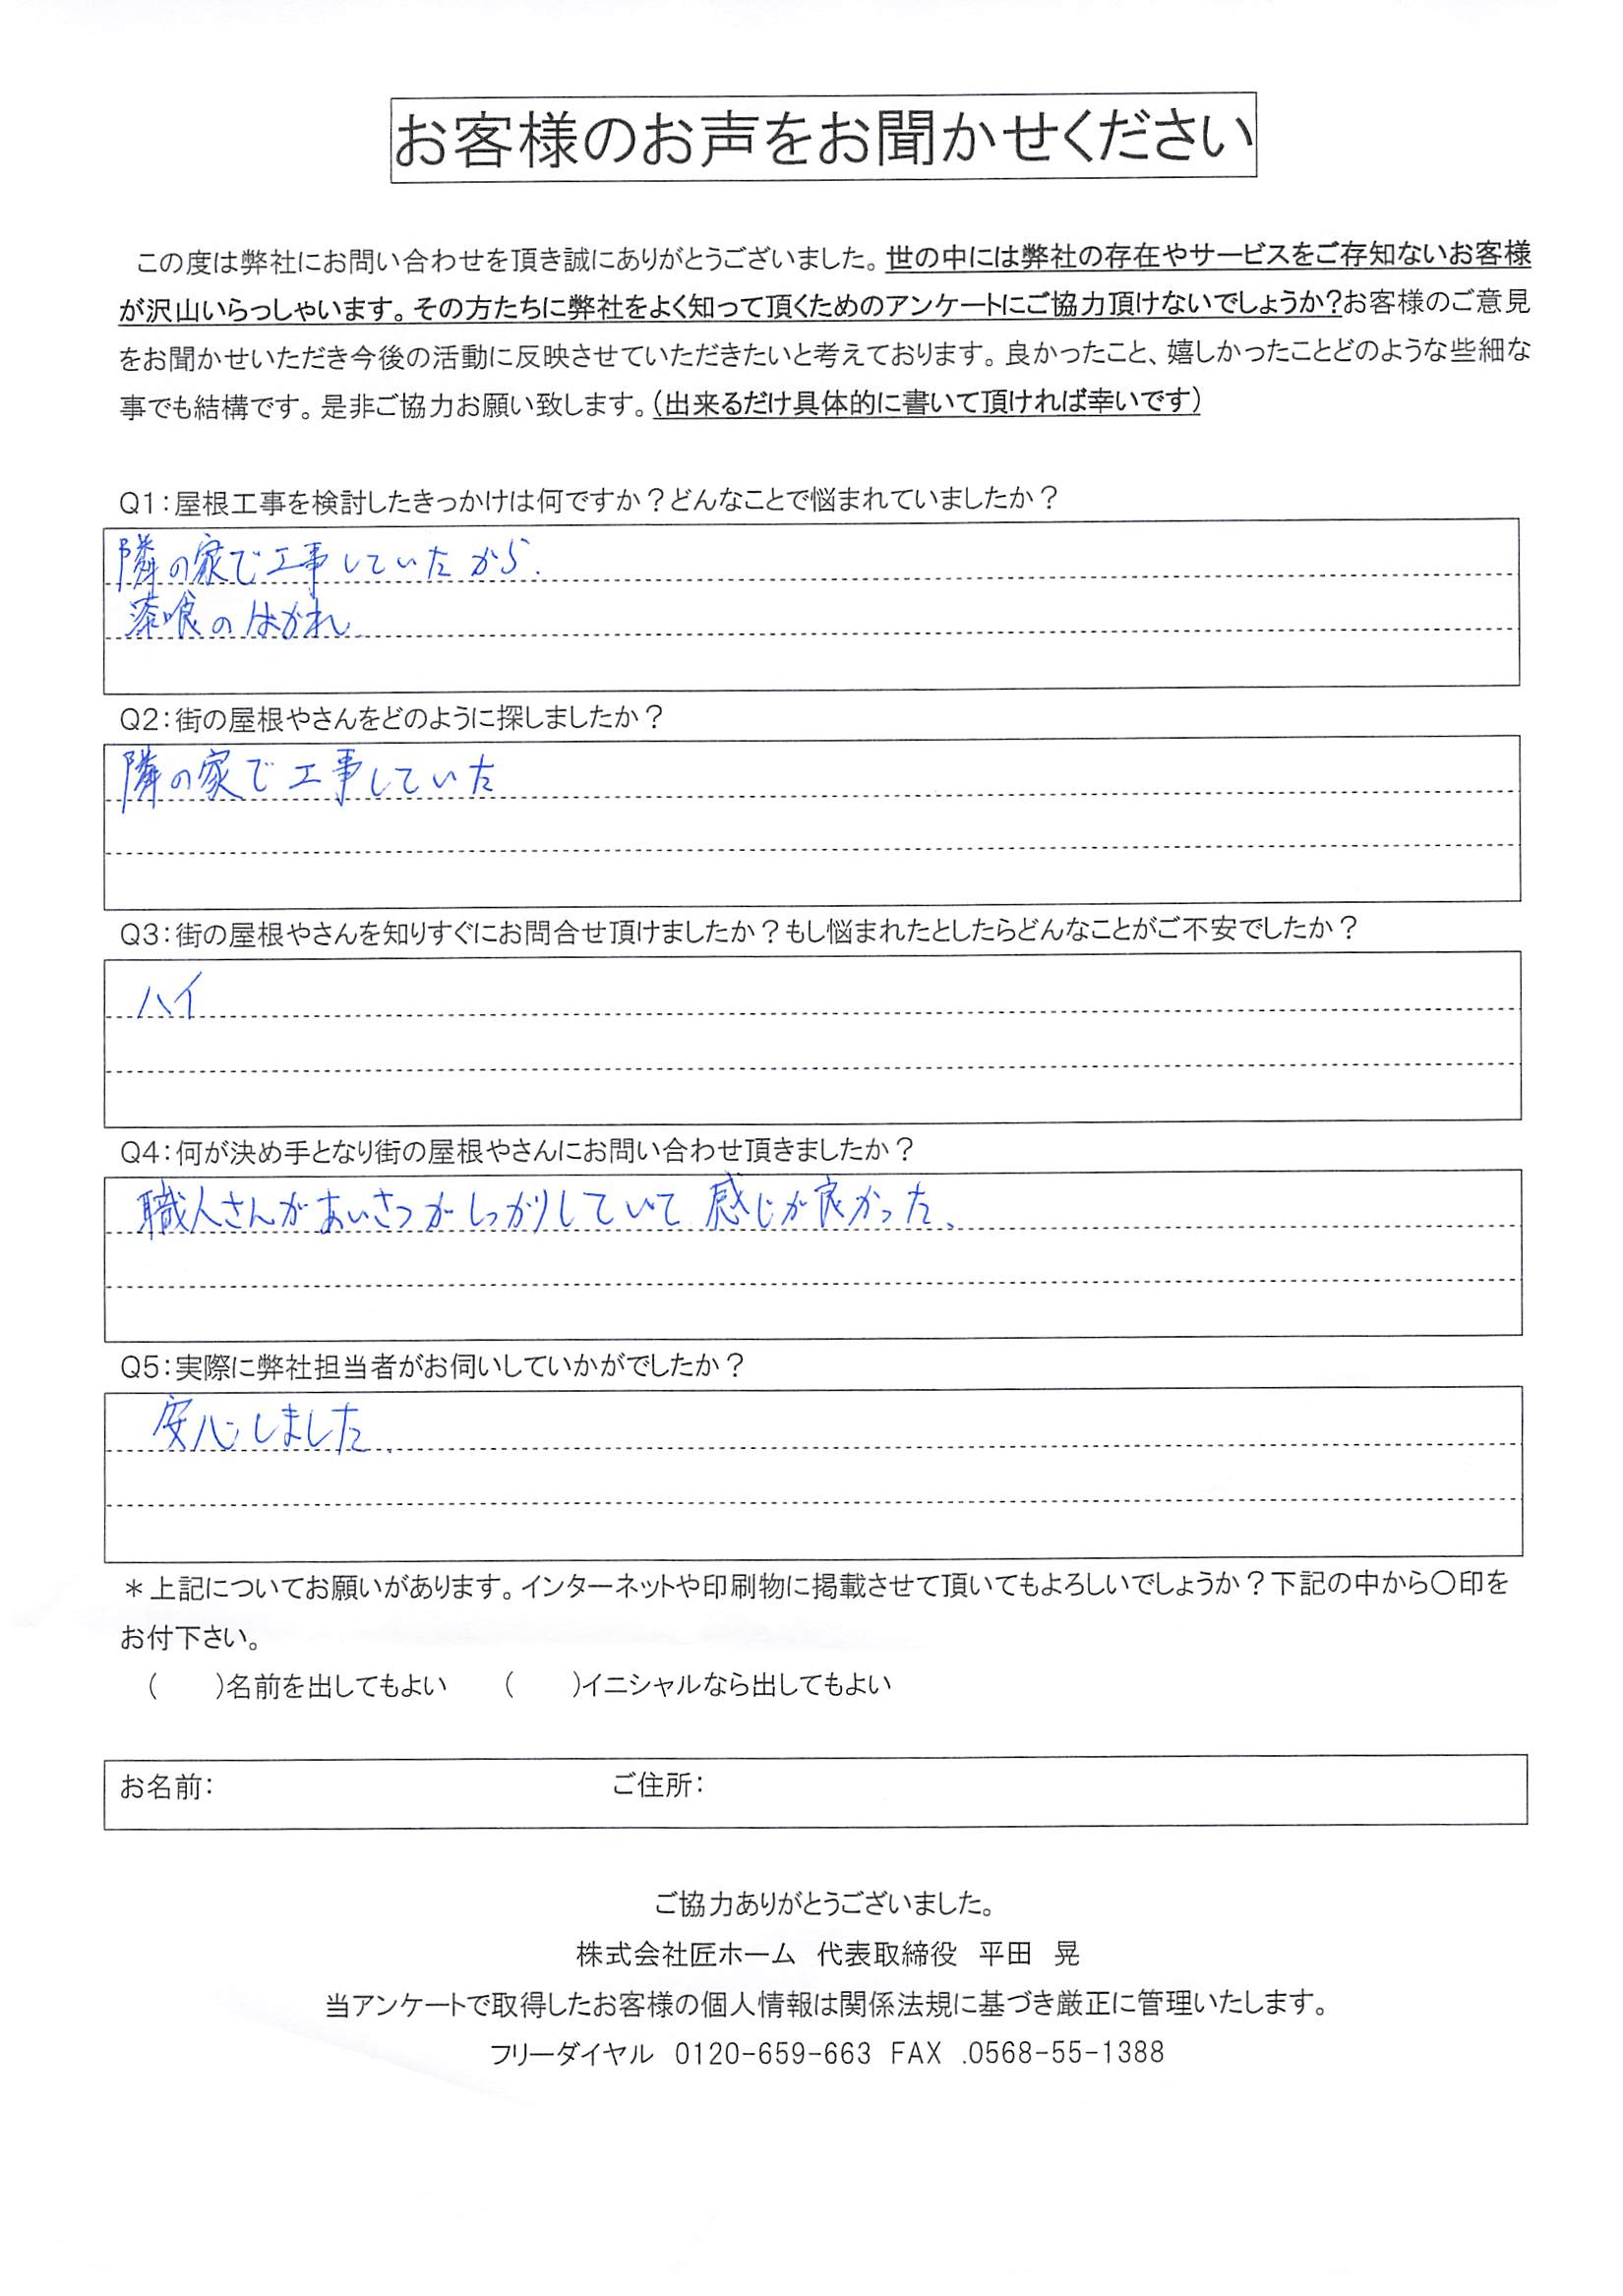 お客様のお声をお聞かせください
この度は弊社にお問い合わせを頂き誠にありがとうございました。世の中には弊社の存在やサービスをご存知ないお客様
が沢山いらっしゃいます。その方たちに弊社をよく知って頂くためのアンケートにご協力頂けないでしょうか?お客様のご意見
をお聞かせいただき今後の活動に反映させていただきたいと考えております。良かったこと、嬉しかったことどのような些細な
事でも結構です。是非ご協力お願い致します。(出来るだけ具体的に書いて頂ければ幸いです)
Q1:屋根工事を検討したきっかけは何ですか?どんなことで悩まれていましたか?
隣の家で工事していたから.
漆喰のはがれ
Q2:街の屋根やさんをどのように探しましたか?
隣の家で工事していた
Q3:街の屋根やさんを知りすぐにお問合せ頂けましたか?もし悩まれたとしたらどんなことがご不安でしたか?
ハイ
Q4:何が決め手となり街の屋根やさんにお問い合わせ頂きましたか?
職人さんがあいさつがしっかりしていて感じが良かった、
Q5:実際に弊社担当者がお伺いしていかがでしたか?
安心しました.
*上記についてお願いがあります。インターネットや印刷物に掲載させて頂いてもよろしいでしょうか?下記の中から〇印を
お付下さい。
(　　)名前を出してもよい　(　　)イニシャルなら出してもよい
お名前:　ご住所:
ご協力ありがとうございました。
株式会社匠ホーム 代表取締役 平田 晃
当アンケートで取得したお客様の個人情報は関係法規に基づき厳正に管理いたします。
フリーダイヤル 0120-659-663 FAX .0568-55-1388